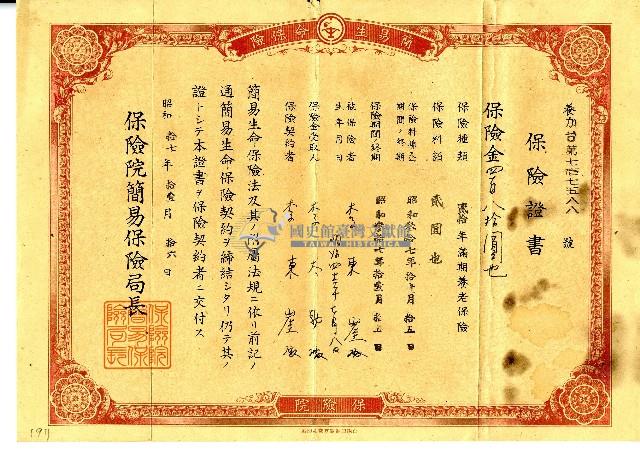 簡易生命保險
養加台第七
號
保險證書
保險金四百八拾圓也
保險種類 貳拾年滿期養老保險
保險料額 貳圓也
保險料拂込期間ノ終期 昭和 七年 月拾五日
保險期間ノ終期 昭和 七年拾貳月拾五日
被保險者 李東
生年月日 明治四十 年 月八日
保險金受取人 李
保險契約者 李東
簡易生命保險法及其ノ附屬法規ニ依リ前記ノ
通簡易生命保險契約ヲ締結シタリ仍テ其ノ
證トシテ本證書ヲ保險契約者ニ交付ス
昭和拾七年拾貳月拾六日
保險院簡易保險局長
保險院簡易保險局長
國史館臺灣文獻館
TAIWAN HISTORICA
保險院
(91)